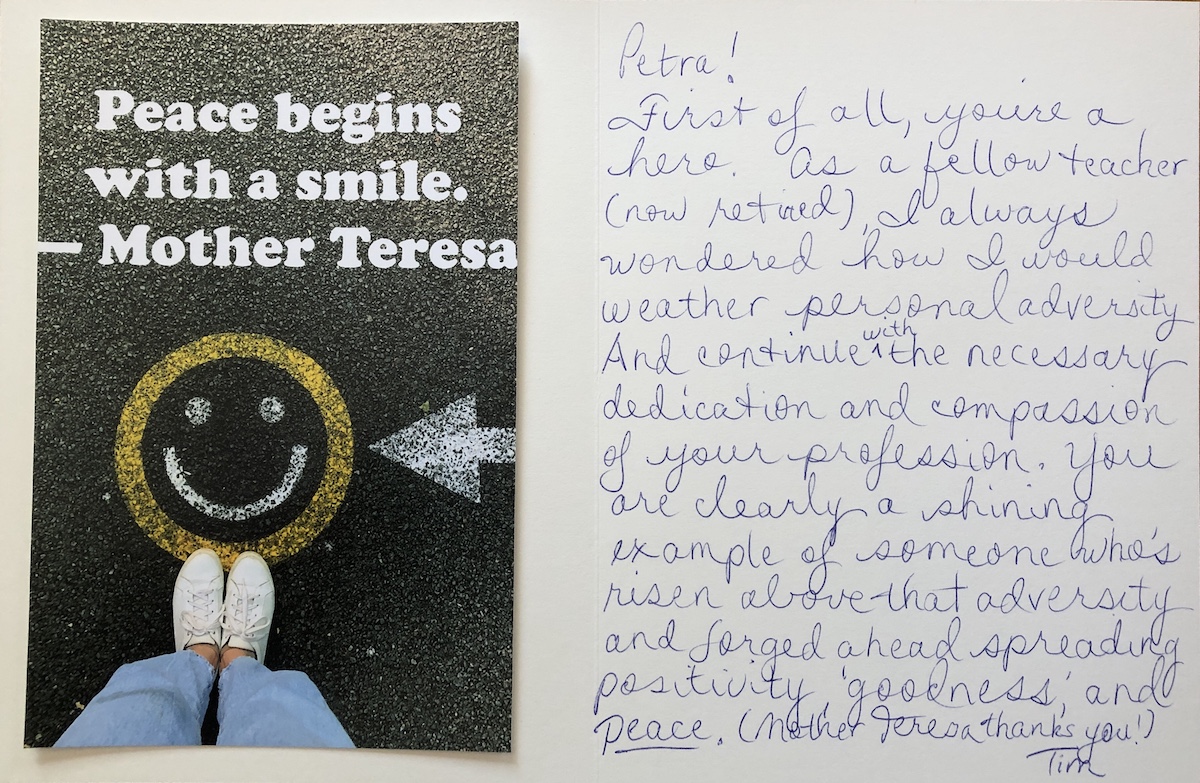 Peace begins
with a smile.
— Mother Teresa
Petra!
First of all, you're a
hero. As a fellow teacher
(now retired), I always
wondered how I would
weather personal adversity
And continue with the necessary
dedication and compassion
of your profession. You
are clearly a shining
example of someone who's
risen above that adversity
and forged ahead spreading
positivity, 'goodness', and
peace. (Mother Teresa thanks you!)
Tim